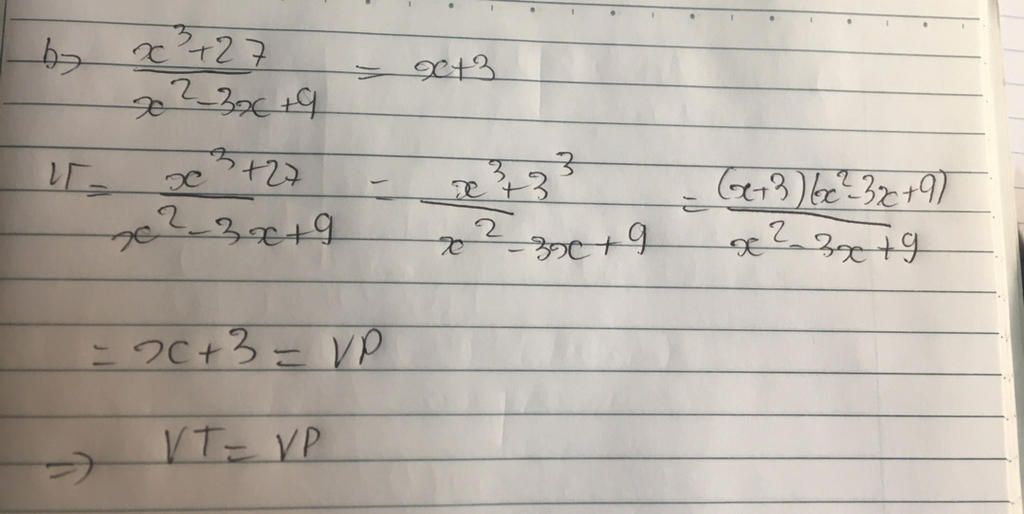 b> x³+27 / x²-3x+9 = x+3
VT = x³+27 / x²-3x+9 = x³+3³ / x²-3x+9 = (x+3)(x²-3x+9) / x²-3x+9
= x+3 = VP
=> VT = VP